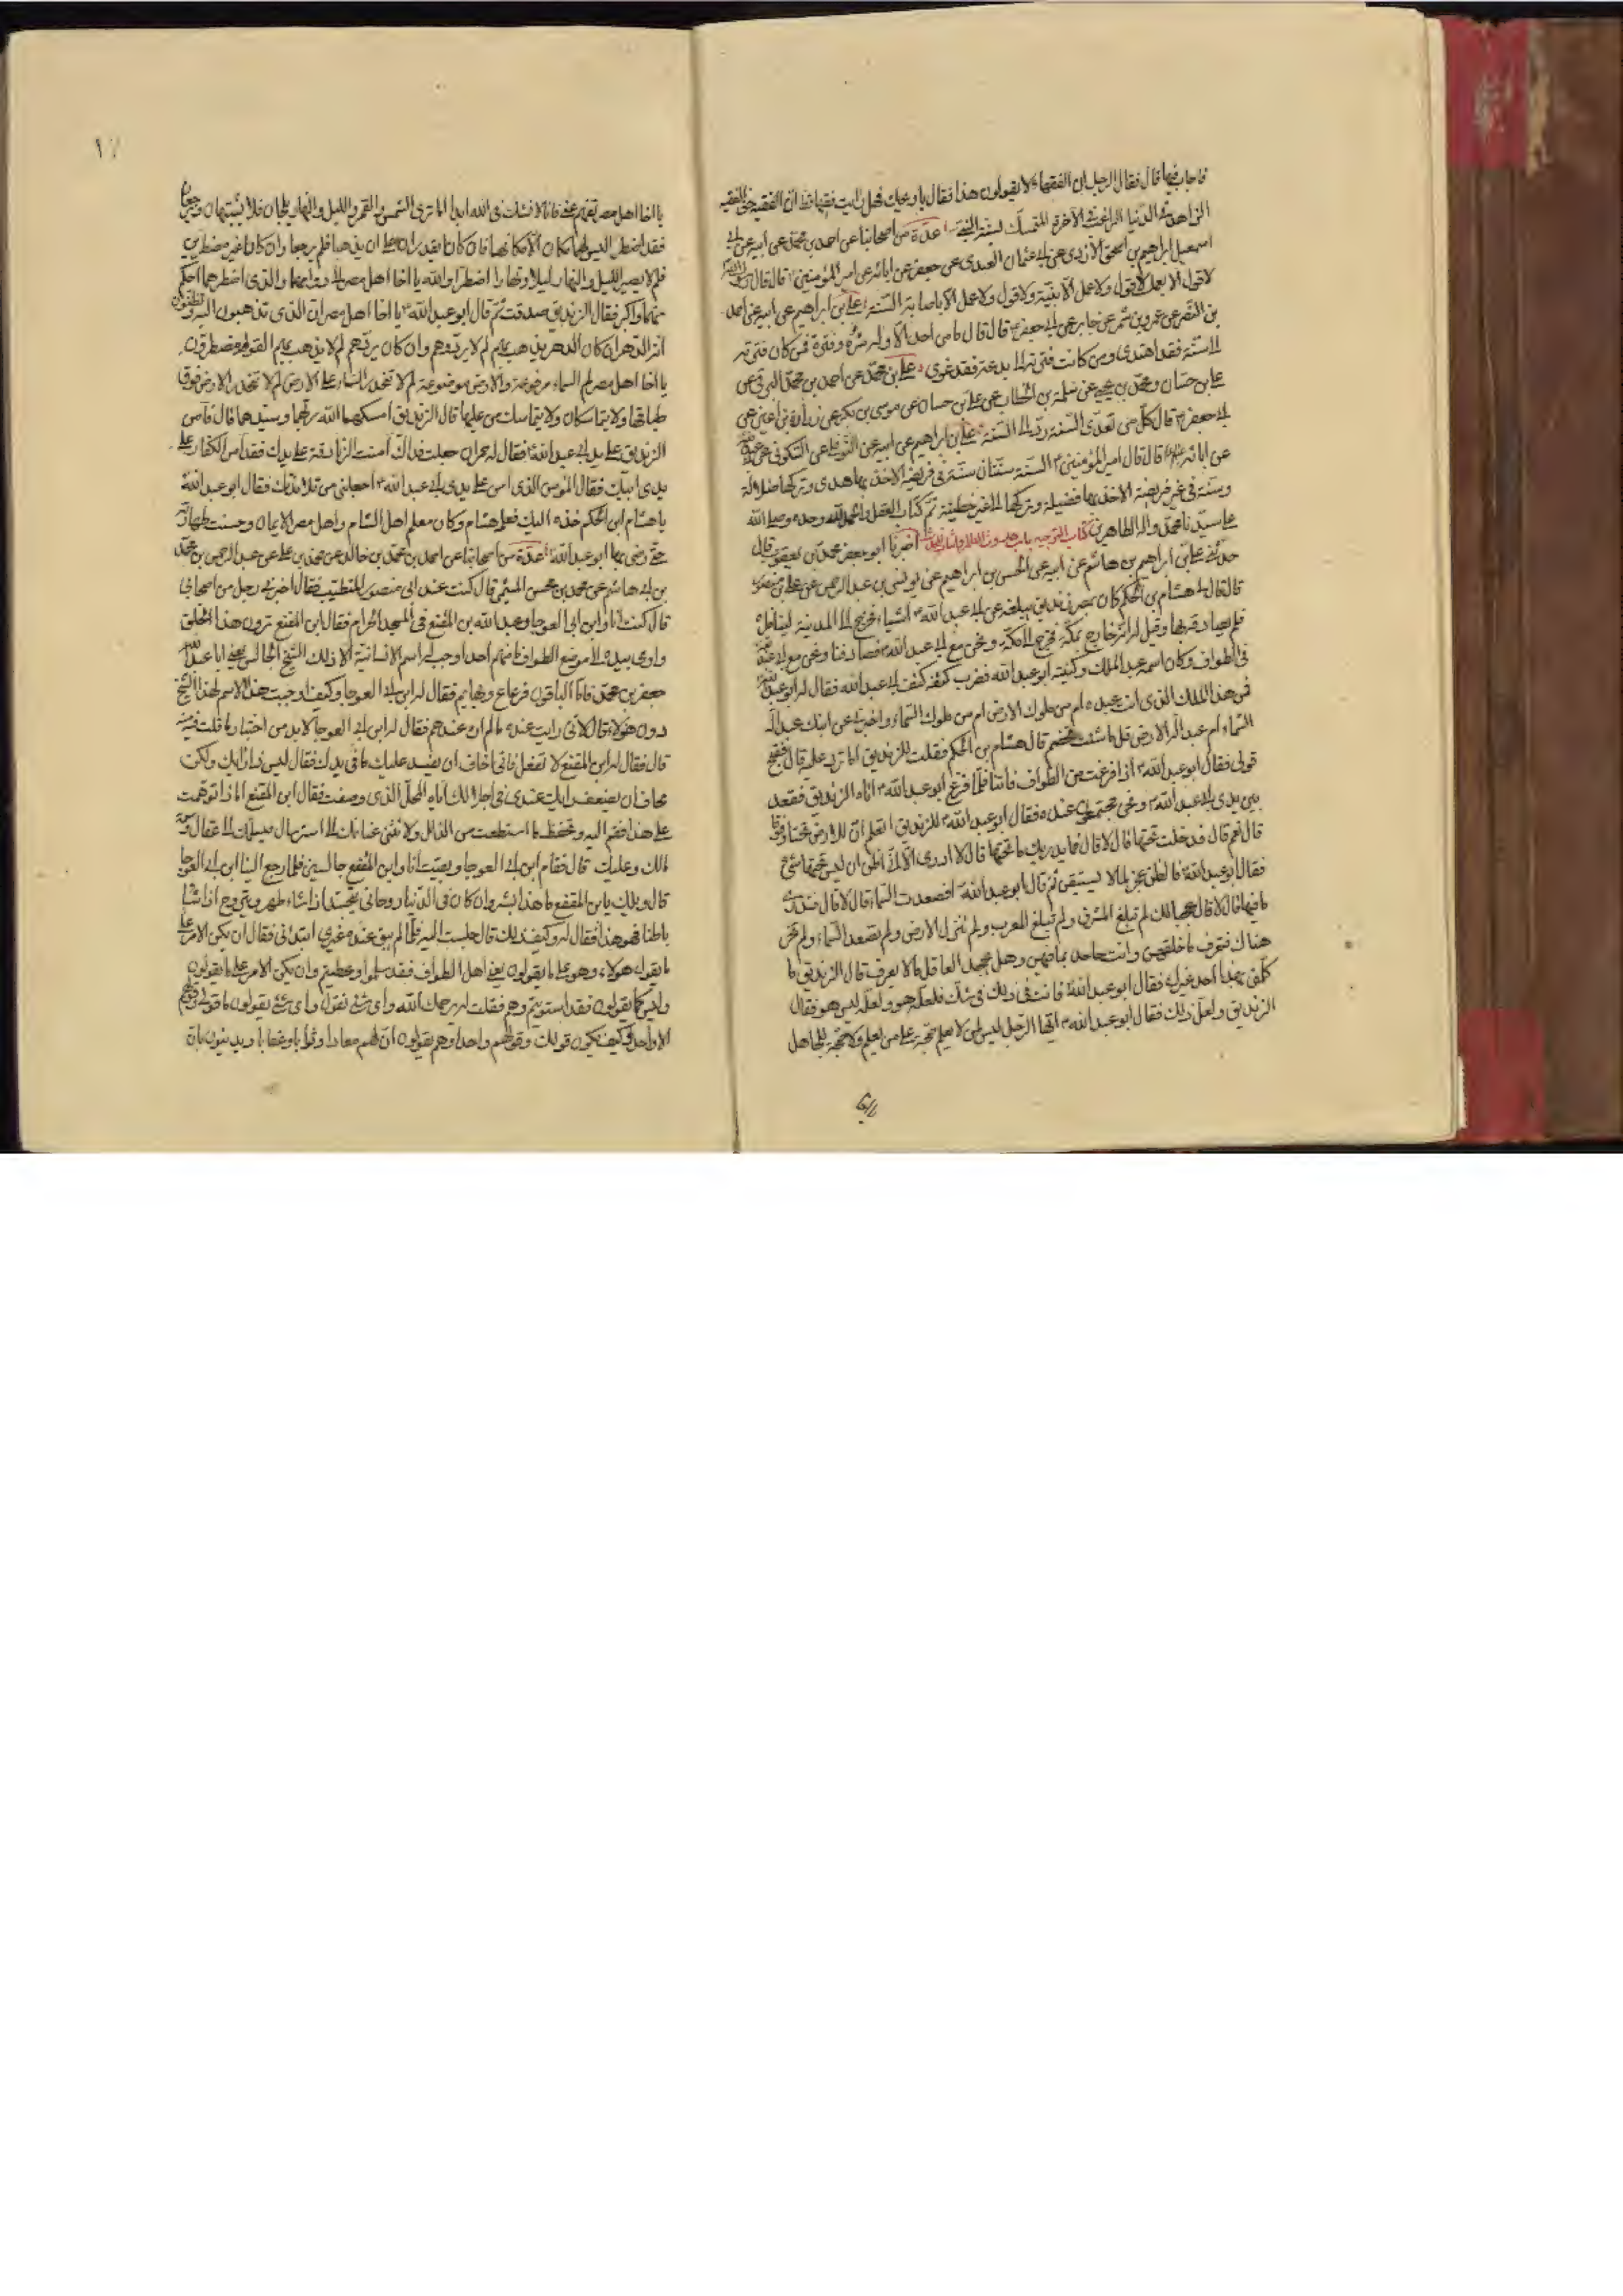 فاجاب فيها قال فقال الرجل ان الفقهاء لا يقولون هذا فقال يا ويحك وهل رايت فقيها قط ان الفقيه حق الفقيه
الزاهد في الدنيا الراغب في الآخرة المتمسك بسنة النبي عدة من اصحابنا عن احمد بن محمد عن ابيه عن ابي
اسمعيل ابراهيم بن اسحق الازدي عن ابي عثمان العبدي عن جعفر عن ابائه عن امير المؤمنين قال قال رسول الله
لا قول الا بعمل ولا قول ولا عمل الا بنية ولا قول ولا عمل الا باصابة السنة علي بن ابراهيم عن ابيه عن احمد
بن النضر عن عمرو بن شمر عن جابر عن ابي جعفر قال قال ما من احد الا وله شرة وفترة فمن كان فترته
الى سنة فقد اهتدى ومن كانت فترته الى بدعة فقد غوى علي بن محمد عن احمد بن محمد البرقي عن
علي بن حسان ومحمد بن يحيى عن سلمة بن الخطاب عن علي بن حسان عن موسى بن بكر عن زرارة بن اعين عن
ابي جعفر قال كل من تعدى السنة رد الى السنة علي بن ابراهيم عن ابيه عن النوفلي عن السكوني عن
عن ابائه قال قال امير المؤمنين السنة سنتان سنة في فريضة الاخذ بها هدى وتركها ضلالة
وسنة في غير فريضة الاخذ بها فضيلة وتركها الى غير خطيئة تم كتاب العقل والحمد لله وحده وصلى الله
على سيدنا محمد واله الطاهرين كتاب التوحيد باب حدوث العالم واثبات المحدث اخبرنا ابو جعفر محمد بن يعقوب قال
حدثني علي بن ابراهيم بن هاشم عن ابيه عن الحسن بن ابراهيم عن يونس بن عبد الرحمن عن علي بن منصور
قال قال لي هشام بن الحكم كان بمصر زنديق يبلغه عن ابي عبد الله اشياء فخرج الى المدينة ليناظره
فلم يصادفه بها وقيل له انه خارج بمكة فخرج الى مكة ونحن مع ابي عبد الله فصادفنا ونحن مع ابي عبد الله
في الطواف وكان اسمه عبد الملك وكنيته ابو عبد الله فضرب كتفه كتف ابي عبد الله فقال له ابو عبد الله
فمن هذا الملك الذي انت عبده ام من ملوك الارض ام من ملوك السماء واخبرني عن ابنك عبد اله
السماء ام عبد اله الارض قل ما شئت تخصم قال هشام بن الحكم فقلت للزنديق اما ترد عليه قال فقبح
قولي فقال ابو عبد الله اذا فرغت من الطواف فاتنا فلما فرغ ابو عبد الله اتاه الزنديق فقعد
بين يدي ابي عبد الله ونحن مجتمعون عنده فقال ابو عبد الله للزنديق اتعلم ان للارض تحتا وفوقا
قال نعم قال فدخلت تحتها قال لا قال فما يدريك ما تحتها قال لا ادري الا اني اظن ان ليس تحتها شئ
فقال ابو عبد الله فالظن عجز لما لا يستيقن ثم قال ابو عبد الله افصعدت السماء قال لا قال فتدري
ما فيها قال لا قال عجبا لك لم تبلغ المشرق ولم تبلغ المغرب ولم تنزل الارض ولم تصعد السماء ولم تجز
هناك فتعرف ما خلفهن وانت جاحد بما فيهن وهل يجحد العاقل ما لا يعرف قال الزنديق ما
كلمني بهذا احد غيرك فقال ابو عبد الله فانت في ذلك في شك فلعله هو ولعله ليس هو فقال
الزنديق ولعل ذلك فقال ابو عبد الله ايها الرجل ليس لمن لا يعلم حجة على من يعلم ولا حجة للجاهل
يا اخا اهل مصر تفهم عني فانا لا نشك في الله ابدا اما ترى الشمس والقمر والليل والنهار يلجان فلا يشتبهان ويرجعان
فقد اضطرا ليس لهما مكان الا مكانهما فان كانا يقدران على ان يذهبا فلم يرجعا وان كانا غير مضطرين
فلم لا يصير الليل والنهار ليلا ونهارا اضطرا والله يا اخا اهل مصر الى دوامهما والذي اضطرهما احكم
منهما واكبر فقال الزنديق صدقت ثم قال ابو عبد الله يا اخا اهل مصر ان الذي تذهبون اليه وتظنون
انه الدهر ان كان الدهر يذهب بهم لم لا يردهم وان كان يردهم لم لا يذهب بهم القوم مضطرون
يا اخا اهل مصر لم السماء مرفوعة والارض موضوعة لم لا تنحدر السماء على الارض لم لا تنحدر الارض فوق
طباقها ولا يتماسكان ولا يتماسك من عليها قال الزنديق امسكهما الله ربهما وسيدهما قال فآمن
الزنديق على يدي ابي عبد الله فقال له حمران جعلت فداك ان آمنت الزنادقة على يدك فقد آمن الكفار على
يدي ابيك فقال المؤمن الذي آمن على يدي ابي عبد الله اجعلني من تلامذتك فقال ابو عبد الله
يا هشام ابن الحكم خذه اليك فعلمه هشام وكان معلم اهل الشام واهل مصر الايمان وحسنت طهارته
حتى رضي بها ابو عبد الله عدة من اصحابنا عن احمد بن محمد بن خالد عن محمد بن علي عن عبد الرحمن بن محمد
بن ابي هاشم عن محمد بن محسن الميثمي قال كنت عند ابي منصور المتطبب فقال اخبرني رجل من اصحابي
قال كنت انا وابن ابي العوجا وعبد الله بن المقفع في المسجد الحرام فقال ابن المقفع ترون هذا الخلق
واومى بيده الى موضع الطواف ما منهم احد اوجب له اسم الانسانية الا ذلك الشيخ الجالس يعني ابا عبد الله
جعفر بن محمد فاما الباقون فرعاع وبهايم فقال له ابن ابي العوجا وكيف اوجبت هذا الاسم لهذا الشيخ
دون هؤلاء قال لاني رايت عنده ما لم اره عندهم فقال له ابن ابي العوجا لا بد من اختبار ما قلت فيه منه
قال فقال له ابن المقفع لا تفعل فاني اخاف ان يفسد عليك ما في يدك فقال ليس ذا رايك ولكن
تخاف ان يضعف رايك عندي في احلالك اياه المحل الذي وصفت فقال ابن المقفع اما اذا توهمت
علي هذا فقم اليه وتحفظ ما استطعت من الذلل ولا تثني عنانك الى استرسال فيسلمك الى عقال وسمه
مالك وعليك قال فقام ابن ابي العوجا وبقيت انا وابن المقفع جالسين فلما رجع الينا ابن ابي العوجا
قال ويلك يا بن المقفع ما هذا ببشر وان كان في الدنيا روحاني يتجسد اذا شاء ظهر ويتروح اذا شاء
باطنا فهو هذا فقال له وكيف ذلك قال جلست اليه فلما لم يبق عنده غيري ابتداني فقال ان يكن الامر على
ما يقول هؤلاء وهو على ما يقولون يعني اهل الطواف فقد سلموا وعطبتم وان يكن الامر على ما تقولون
وليس كما تقولون فقد استويتم وهم فقلت له يرحمك الله واي شئ نقول واي شئ يقولون ما قولي وقولهم
الا واحد فقال وكيف يكون قولك وقولهم واحدا وهم يقولون ان لهم معادا وثوابا وعقابا ويدينون بان